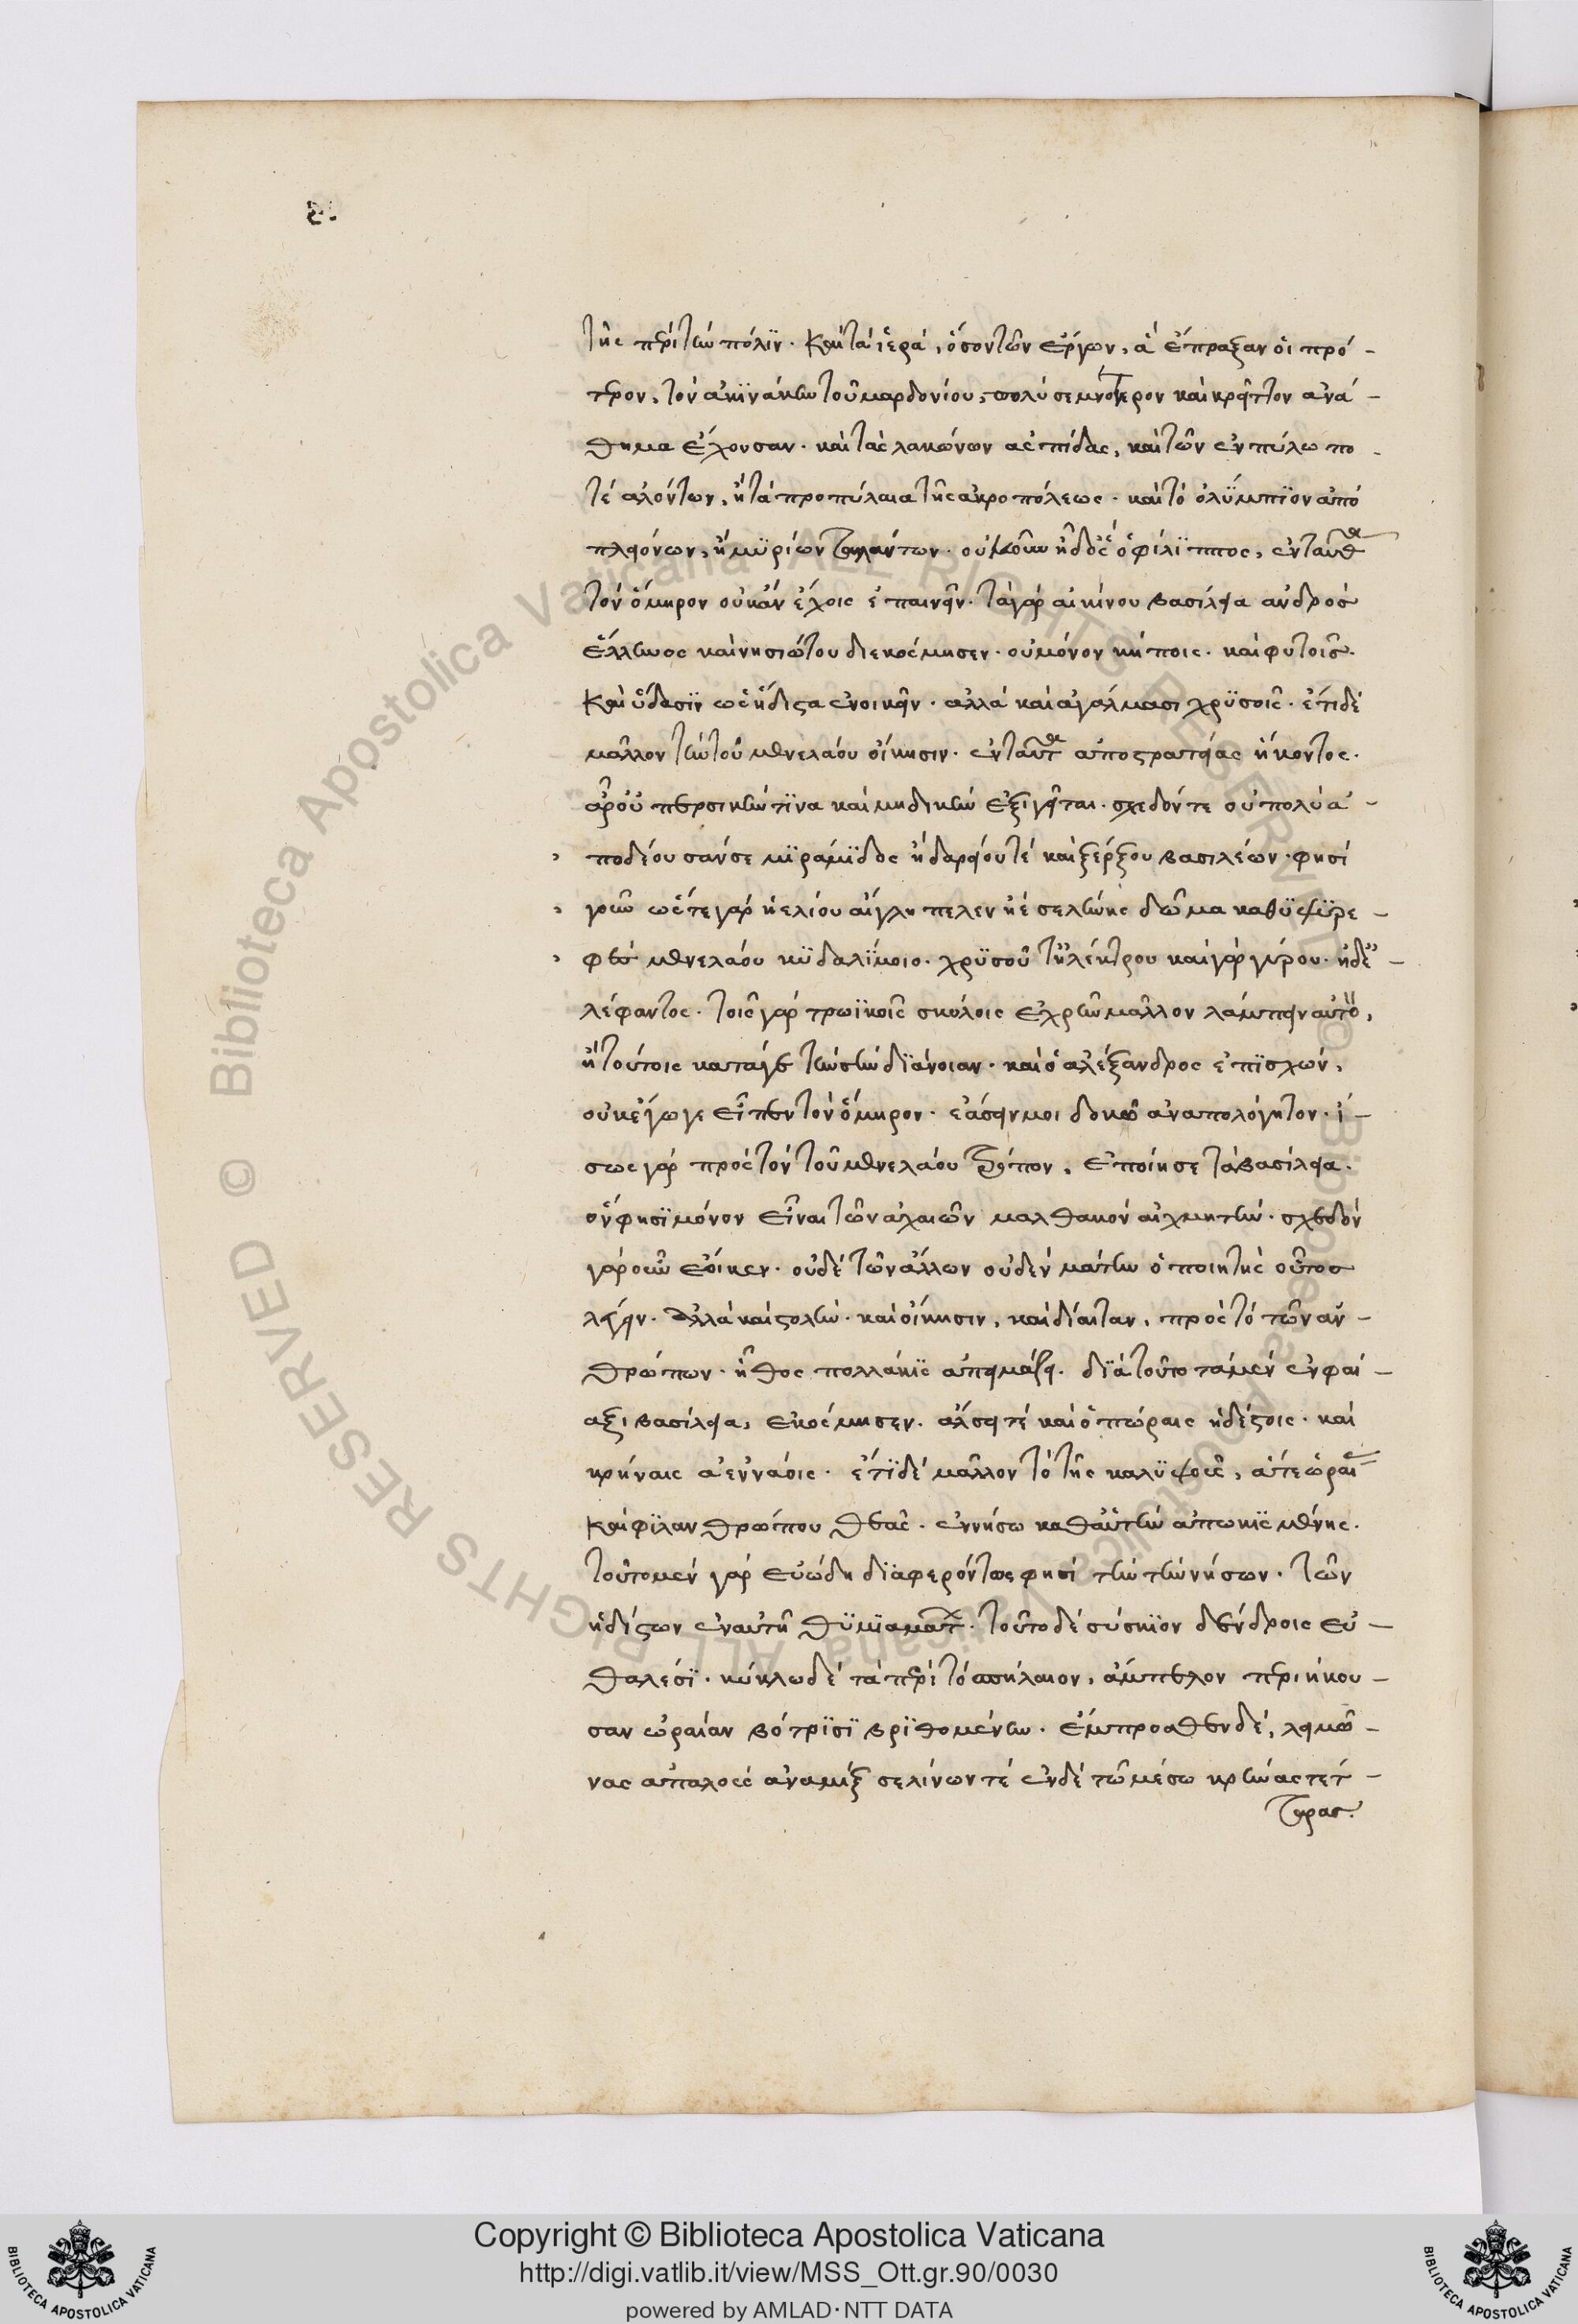 τῆς περὶ τὴν πόλϊν. καὶ τὰ ἱερά, ὅσον τῶν ἔργων, ἃ ἔπραξαν οἱ πρό-
τερον, τὸν ἀκϊνάκην τοῦ μαρδονίου, πολὺ σεμνότερον καὶ κρεῖττον ἀνά-
θημα ἔχουσαν. καὶ τὰς λακώνων ἀσπίδας, καὶ τῶν ἐν πύλω πο
τὲ ἁλόντων, ἢ τὰ προπύλαια τῆς ἀκροπόλεως. καὶ τὸ ὀλϋμπϊον ἀπὸ
πλειόνων, ἢ μϋρίων ταλάντων. οὐκοῦν ἦ δὸς ὁ φίλϊππος, ἐνταῦθα
τὸν ὅμηρον οὐκ ἂν ἔχοις ἐπαινεῖν. τὰ γὰρ ἀλκίνου βασίλεια ἀνδρὸς
ἕλληνος καὶ νησιώτου διεκόσμησεν. οὐ μόνον κήποις. καὶ φυτοῖς.
καὶ ὕδασϊν ὡς ἥδιστα ἐνοικεῖν. ἀλλὰ καὶ ἀγάλμασι χρϋσοῖς. ἔτι δὲ
μᾶλλον τὴν τοῦ μενελάου οἴκησιν. ἐνταῦθα ἀπὸ στρατείας ἥκοντος.
ἆρ οὐ περσικήν τϊνα καὶ μηδικὴν ἐξιγεῖται. σχεδόν τε οὐ πολὺ ἀ-
ποδέουσαν σεμϊράμϊδος ἢ δαρείου τὲ καὶ ξέρξου βασιλέων. φησὶ
γοῦν ὥστε γὰρ ἠελίου αἴγλη πέλεν ἠὲ σελήνης δῶμα καθ ϋψϋρε-
φὲς μενελάου κϋδαλΐμοιο. χρϋσοῦ τ ἠλέκτρου καὶ γ ἀργύρου. ἠδ ἐ-
λέφαντος. τοῖς γὰρ τρωϊκοῖς σκύλοις ἐχρῆν μᾶλλον λάμπειν αὐτό,
ἢ τούτοις κατά γε τὴν σὴν δϊάνοιαν. καὶ ὁ ἀλέξανδρος ἐπϊσχών,
οὐκ ἔγωγε εἶπεν τὸν ὅμηρον. ἐάσειν μοι δοκῶ ἀναπολόγητον. ἴ-
σως γὰρ πρὸς τὸν τοῦ μενελάου τρόπον, ἐποίησε τὰ βασίλεια.
ὅν φησϊ μόνον εἶναι τῶν ἀχαιῶν μαλθακὸν αἰχμητήν. σχεδὸν
γὰρ οὖν ἔοικεν. οὐδὲ τῶν ἄλλων οὐδὲν μάτην ὁ ποιητὴς οὗτος
λέγειν. ἀλλὰ καὶ στολὴν. καὶ οἴκησιν, καὶ δίαιταν, πρὸς τὸ τῶν ἀν-
θρώπων. ἦθος πολλάκϊς ἀπεικάζει. δϊὰ τοῦτο τὰ μὲν ἐν φαί-
αξι βασίλεια, ἐκόσμησεν. ἄλσει τὲ καὶ ὀπώραις ἡδίστοις. καὶ
κρήναις ἀεννάοις. ἔτϊ δὲ μᾶλλον τὸ τῆς καλϋψοῦς, ἅτε ὡραίας
καὶ φϊλανθρώπου θεᾶς. ἐν νήσω καθ αὑτὴν ἀπωκϊσμένης.
τοῦτο μὲν γὰρ εὐώδη δϊαφερόντως φησὶ τὴν τὴν νήσων. τῶν
ἡδίστων ἐν αὐτῆ θϋμϊαμάτων. τοῦτο δὲ σύσκϊον δένδροις εὐ-
θαλέσϊ. κύκλω δὲ τὰ περὶ τὸ σπήλαιον, ἄμπελον περιήκου-
σαν ὡραίαν βότρϊσϊ βρϊθομένην. ἔμπροσθεν δέ, λειμῶ-
νας ἁπαλοὺς ἀναμὶξ σελίνων τὲ ἐν δὲ τῶ μέσω κρήνας τέτ-
ταρας.
Copyright © Biblioteca Apostolica Vaticana
http://digi.vatlib.it/view/MSS_Ott.gr.90/0030
powered by AMLAD·NTT DATA